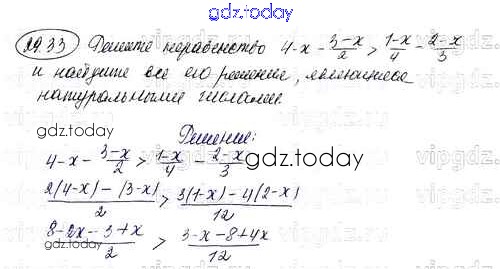 gdz.today
29.33 Решите неравенство 4-x - \frac{3-x}{2} > \frac{1-x}{4} - \frac{2-x}{3}
и найдите все его решения, являющиеся
натуральными числами.
gdz.today
Решение:
4-x - \frac{3-x}{2} > \frac{1-x}{4} - \frac{2-x}{3} gdz.today
\frac{2(4-x)-(3-x)}{2} > \frac{3(1-x)-4(2-x)}{12}
\frac{8-2x-3+x}{2} > \frac{3-x-8+4x}{12}
gdz.today